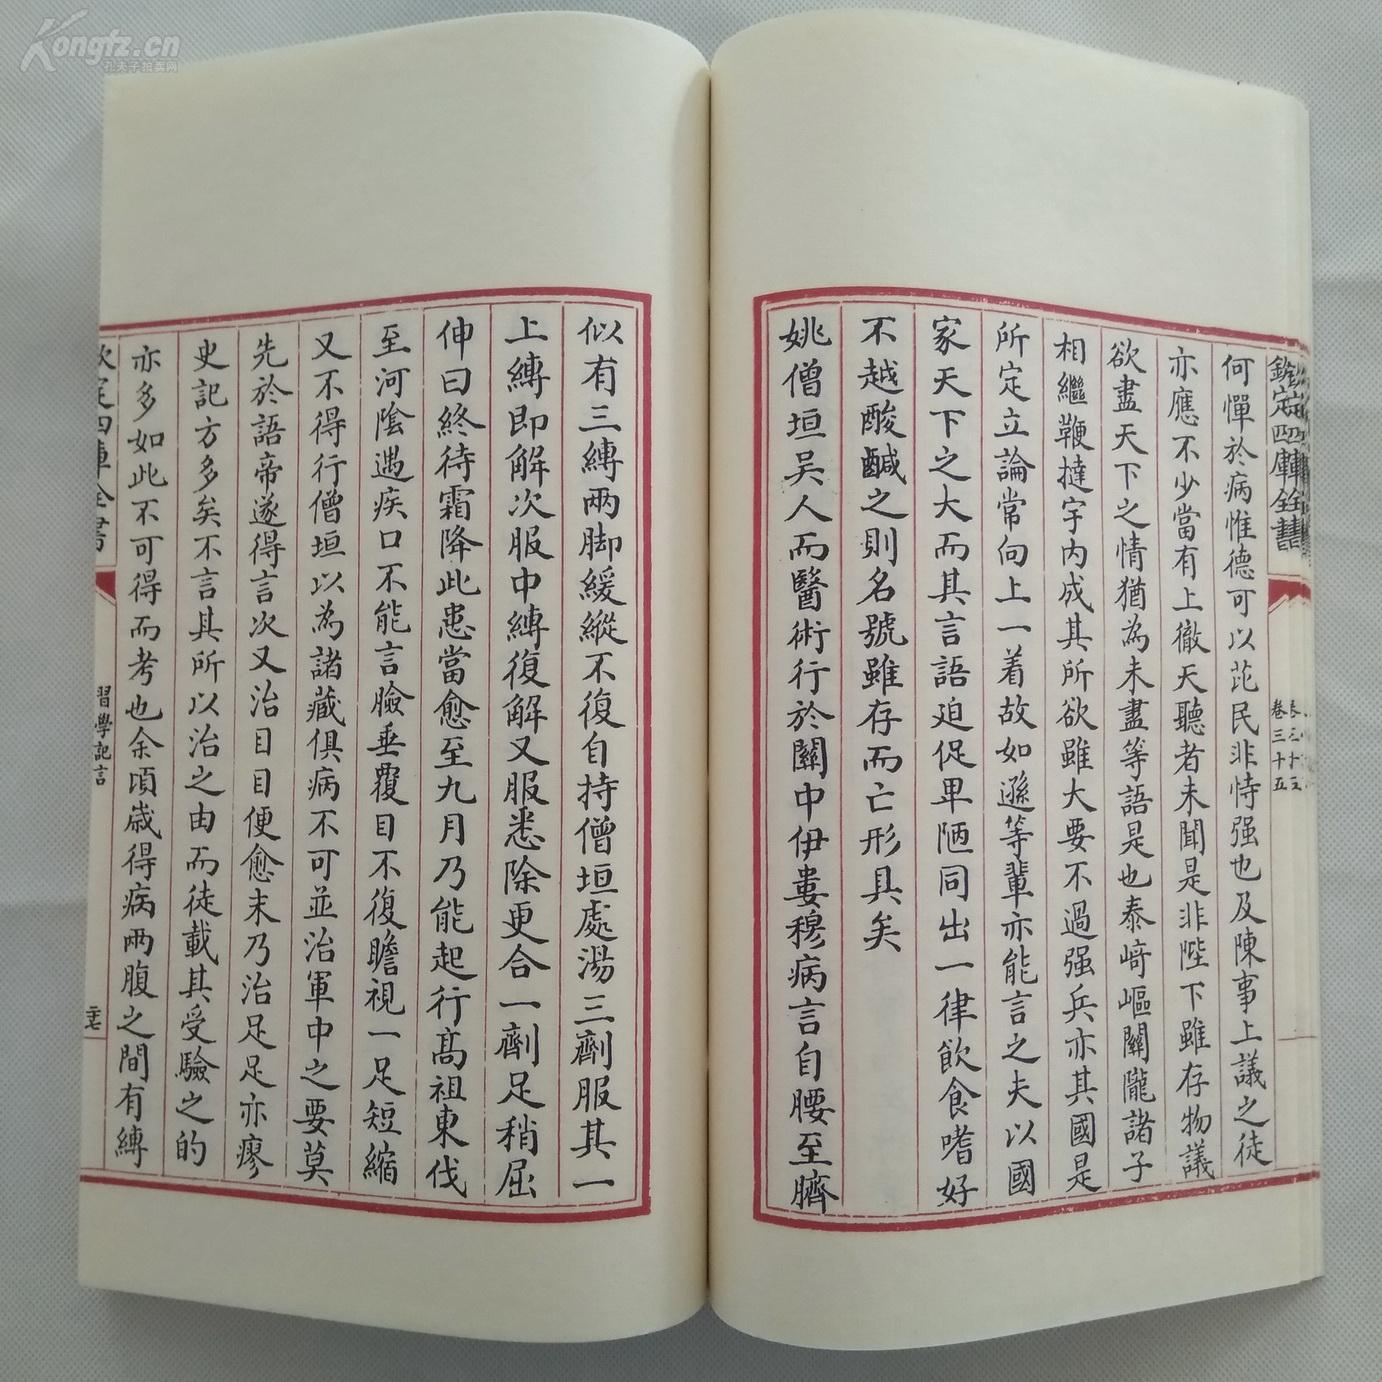 Kongfz.cn
孔夫子拍卖网
欽定四庫全書
卷三十五
何憚於病惟德可以芘民非恃强也及陳事上議之徒
亦應不少當有上徹天聽者未聞是非陛下雖存物議
欲盡天下之情猶為未盡等語是也泰﨑嶇關隴諸子
相繼鞭撻宇内成其所欲雖大要不過强兵亦其國是
所定立論常向上一着故如遜等輩亦能言之夫以國
家天下之大而其言語迫促卑陋同出一律飲食嗜好
不越酸鹹之則名號雖存而亡形具矣
姚僧垣吴人而醫術行於關中伊婁穆病言自腰至臍
似有三縛兩脚緩縱不復自持僧垣處湯三劑服其一
上縛即解次服中縛復解又服悉除更合一劑足稍屈
伸曰終待霜降此患當愈至九月乃能起行髙祖東伐
至河陰遇疾口不能言臉垂覆目不復瞻視一足短縮
又不得行僧垣以為諸藏俱病不可並治軍中之要莫
先於語帝遂得言次又治目目便愈末乃治足足亦瘳
史記方多矣不言其所以治之由而徒載其受驗之的
亦多如此不可得而考也余頃歳得病兩腹之間有縛
欽定四庫全書
習學記言